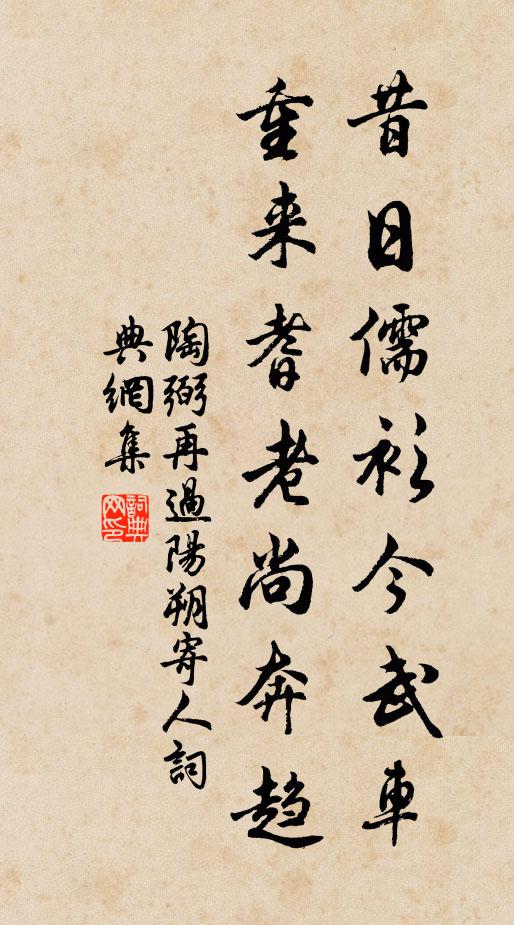 昔日儒衫今武車
重来耆老尚奔趋
陶弼再過陽朔寄人詞
典網集
詞典网印